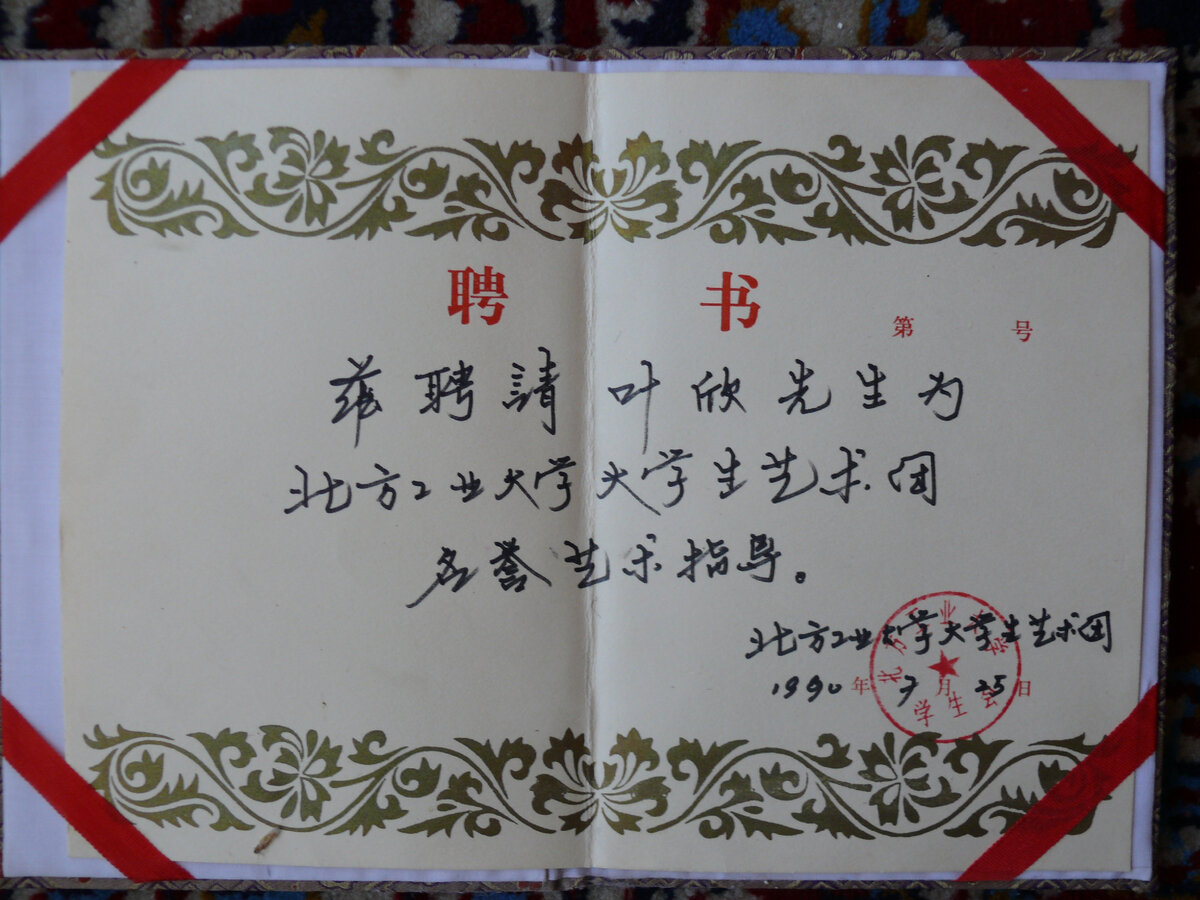 聘 书
第 号
兹聘請叶欣先生为
北方工业大学大学生艺术团
名誉艺术指导。
北方工业大学大学生艺术团
1990年9月25日
北方工业大学
学生会